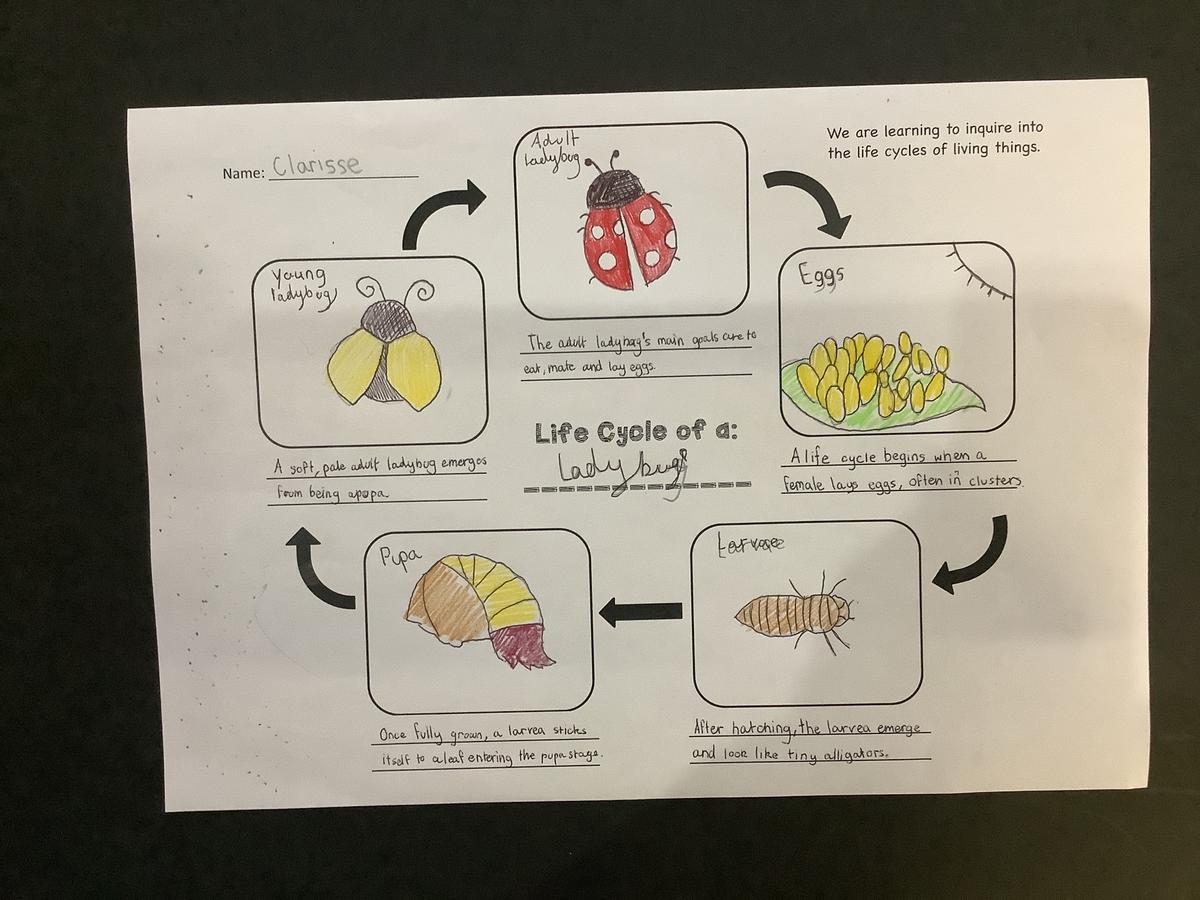 Name: Clarisse
We are learning to inquire into
the life cycles of living things.
Adult
ladybug
The adult ladybug's main goals are to
eat, mate and lay eggs.
Eggs
A life cycle begins when a
female lays eggs, often in clusters.
Larvae
After hatching, the larvea emerge
and look like tiny alligators.
Pupa
Once fully grown, a larvea sticks
itself to a leaf entering the pupa stage.
Young
ladybug
A soft, pale adult ladybug emerges
from being apupa
Life Cycle of a:
Ladybug